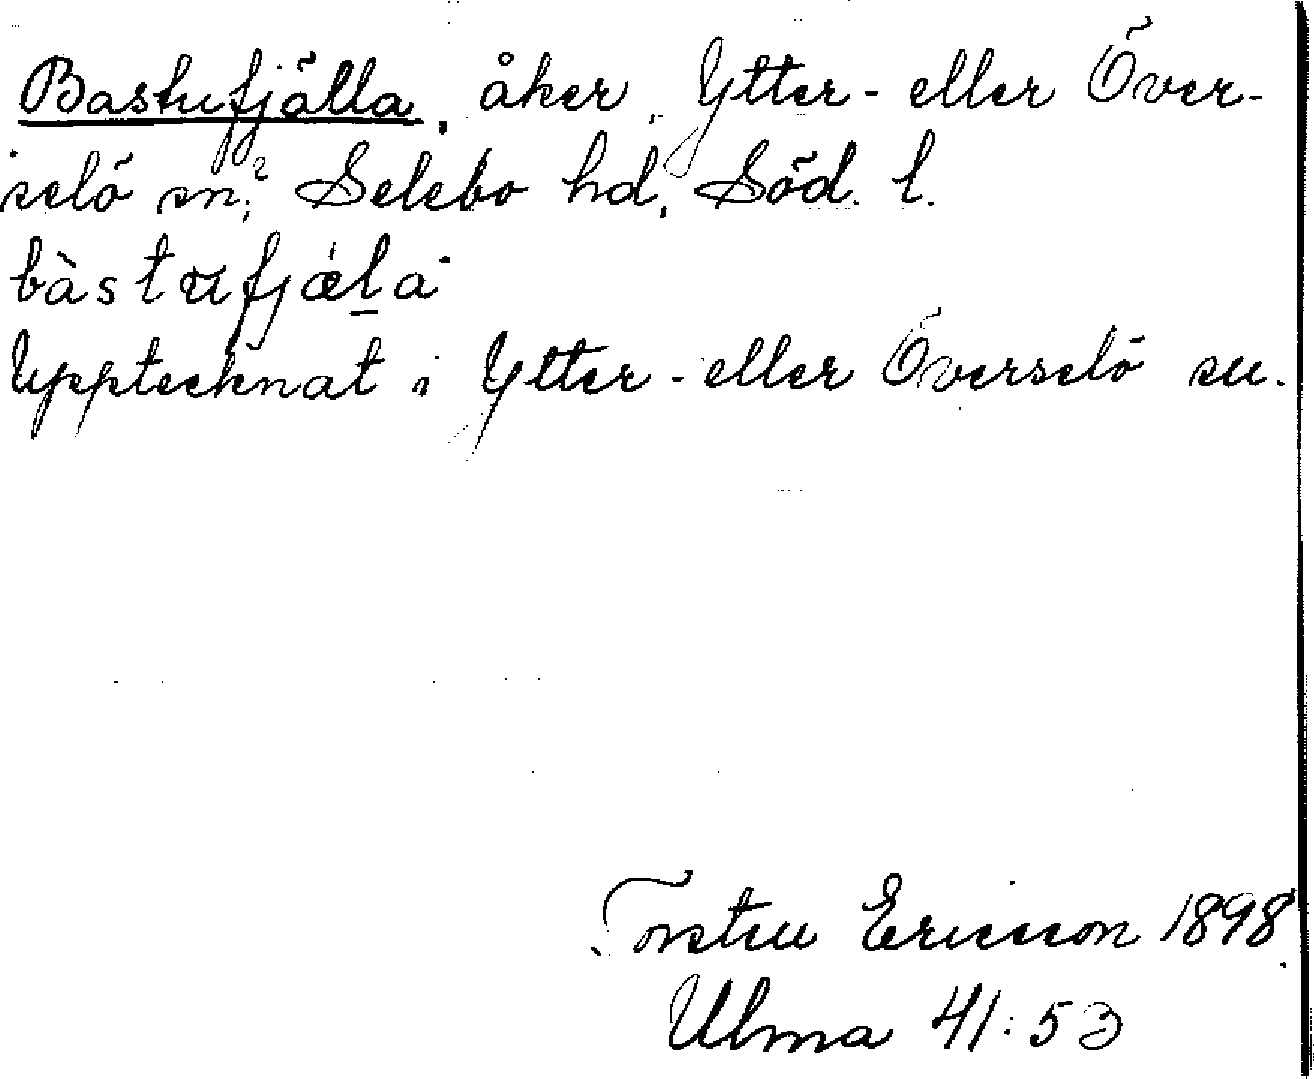 Bastufjälla, åker, Ytter- eller Över-
selö sn;? Selebo hd, Söd. l.
bàstufjæ̀la
Upptecknat i Ytter- eller Överselö sn.
Torsten Ericsson 1898
Ulma 41:53